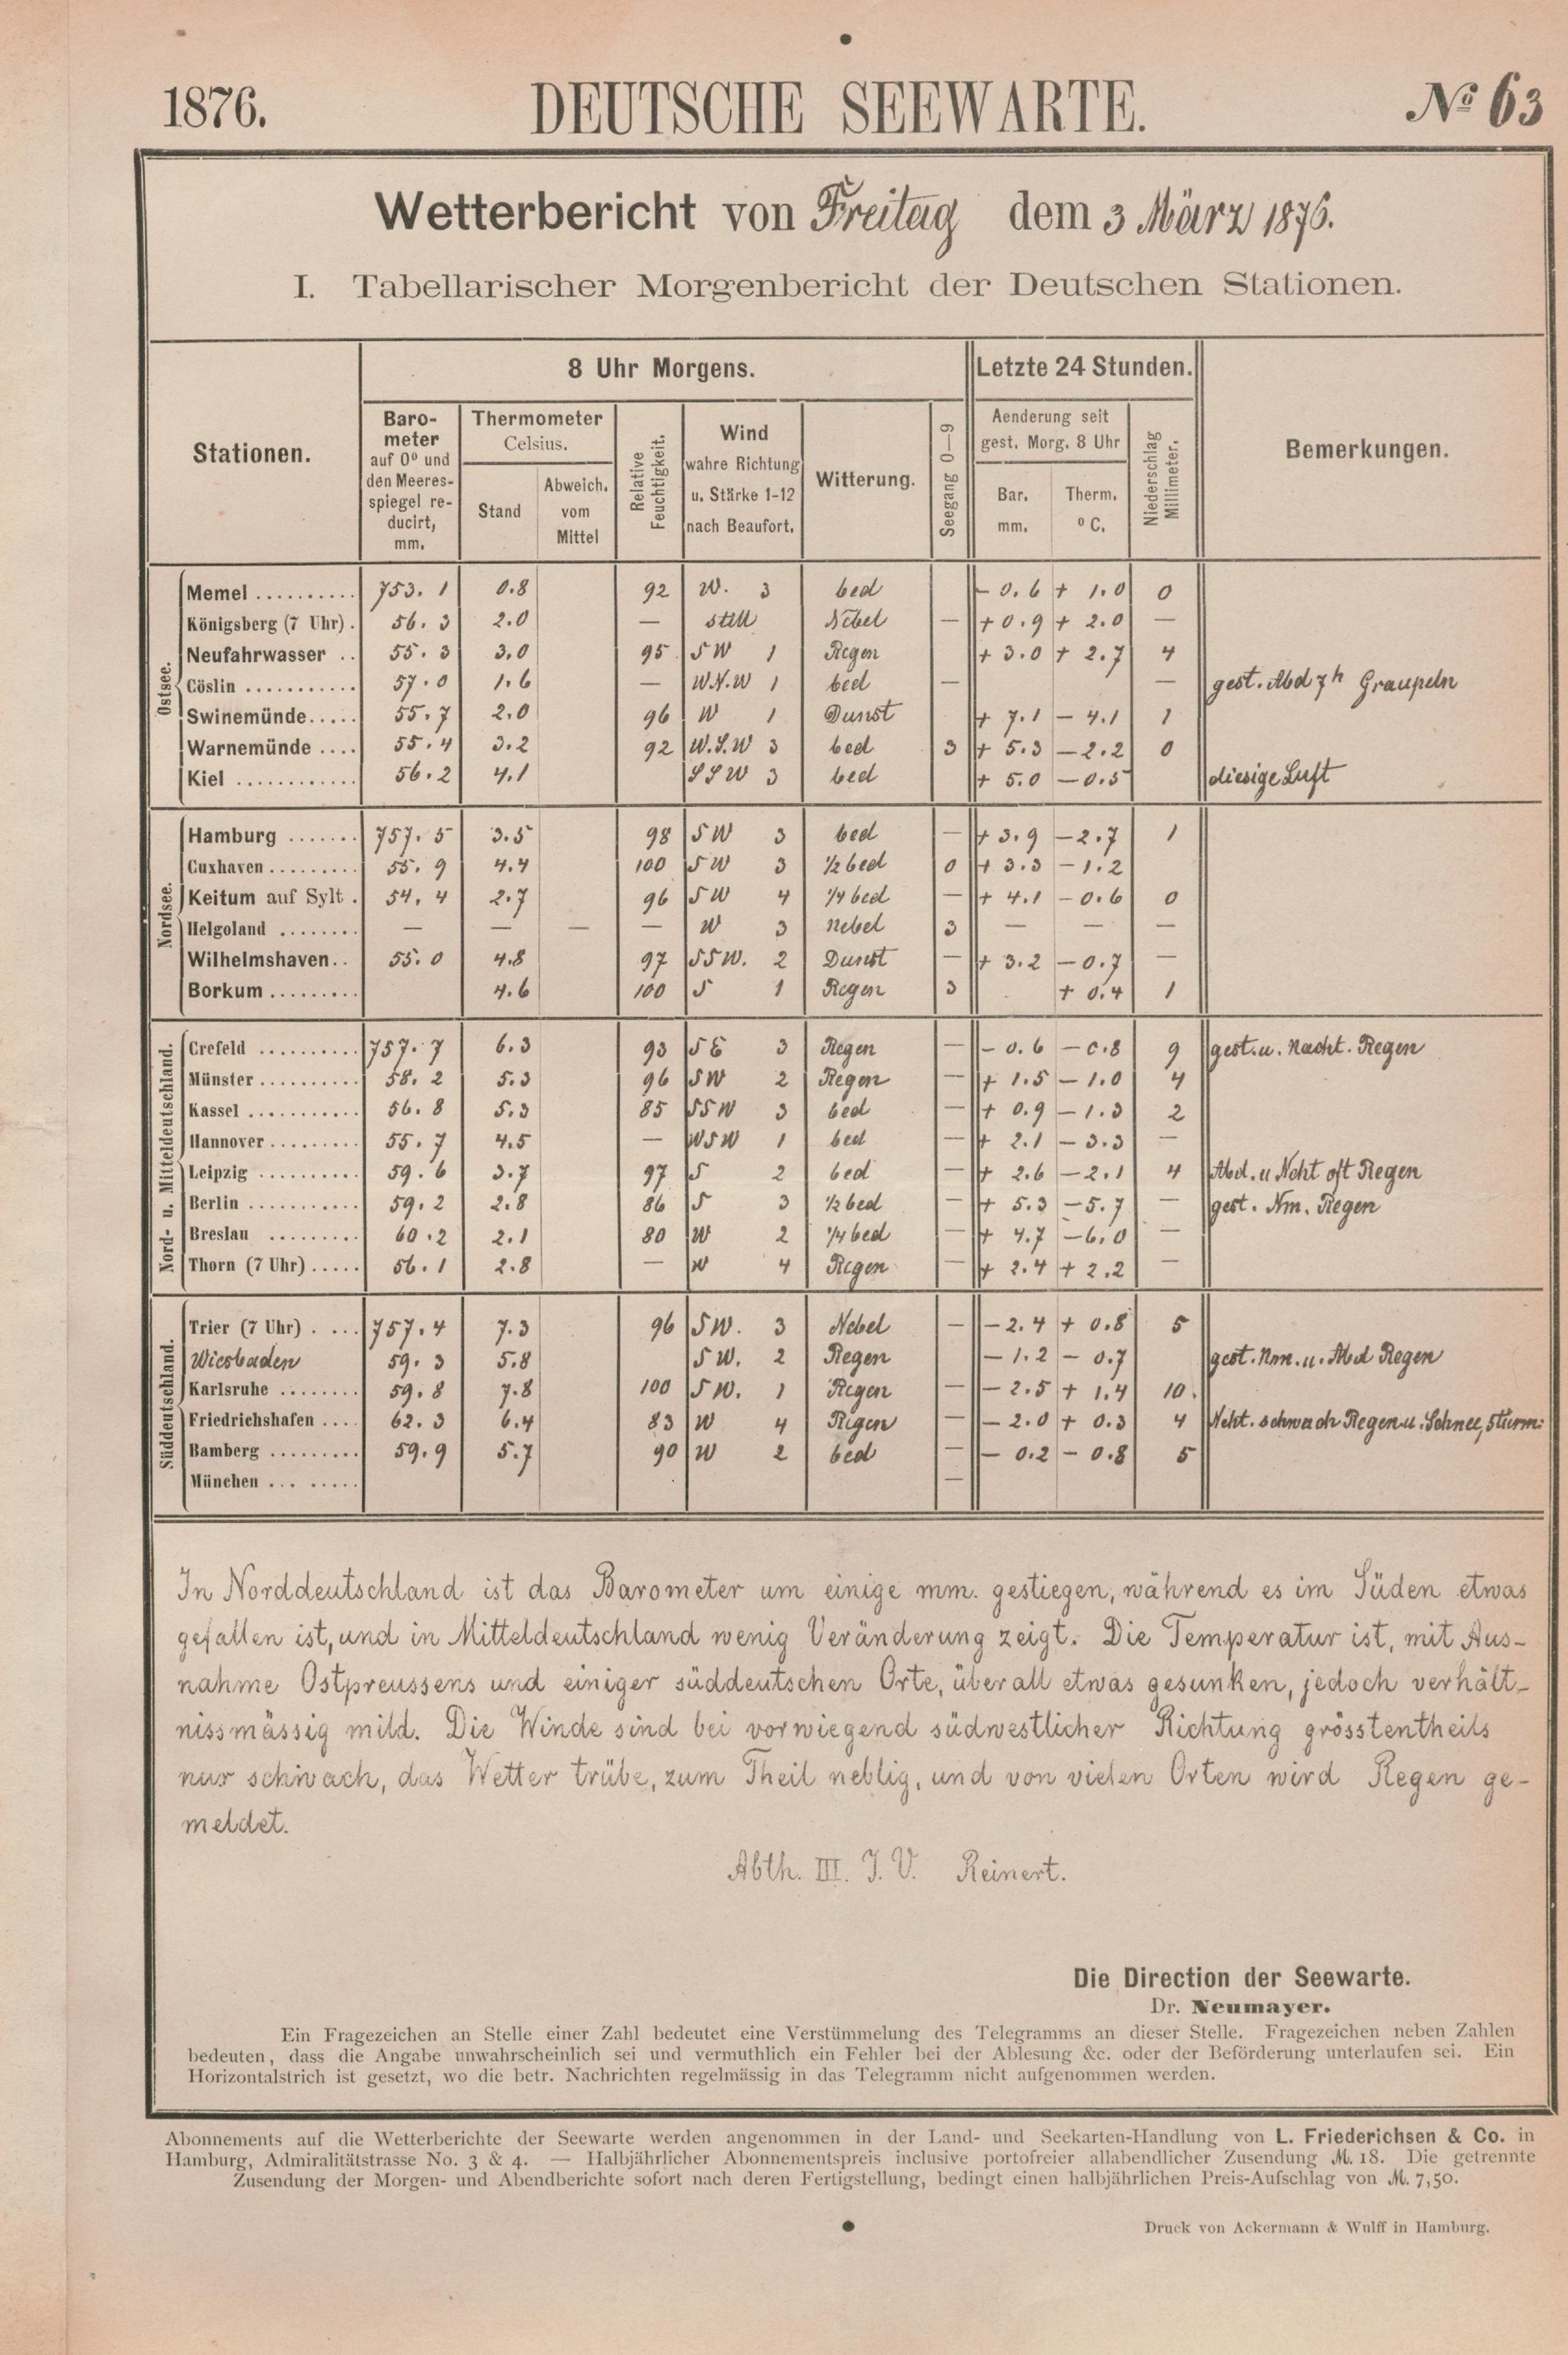 1876. DEUTSCHE SEEWARTE. No 63
Wetterbericht von Freitag dem 3 März 1876.
I. Tabellarischer Morgenbericht der Deutschen Stationen.
Stationen. 8 Uhr Morgens. Letzte 24 Stunden. Bemerkungen.
Barometer auf 0° und den Meeresspiegel reducirt, mm. Thermometer Celsius. Stand Abweich. vom Mittel Relative Feuchtigkeit. Wind wahre Richtung u. Stärke 1-12 nach Beaufort. Witterung. Seegang 0—9 Aenderung seit gest. Morg. 8 Uhr Bar. mm. Therm. ° C. Niederschlag Millimeter.
Ostsee.
Memel .......... 753.1 0.8 92 W. 3 bed - 0.6 + 1.0 0
Königsberg (7 Uhr) . 56.3 2.0 — still Nebel — + 0.9 + 2.0 —
Neufahrwasser .. 55.3 3.0 95 SW 1 Regen + 3.0 + 2.7 4
Cöslin ........... 57.0 1.6 — WN.W 1 bed — — gest. Abd 7h Graupeln
Swinemünde..... 55.7 2.0 96 W 1 Dunst + 7.1 - 4.1 1
Warnemünde .... 55.4 3.2 92 W.S.W 3 bed 3 + 5.3 - 2.2 0
Kiel ............ 56.2 4.1 SSW 3 bed + 5.0 - 0.5 diesige Luft
Nordsee.
Hamburg ....... 757.5 3.5 98 SW 3 bed — + 3.9 - 2.7 1
Cuxhaven ......... 55.9 4.4 100 SW 3 ½ bed 0 + 3.3 - 1.2
Keitum auf Sylt . 54.4 2.7 96 SW 4 ¼ bed — + 4.1 - 0.6 0
Helgoland ........ — — — — W 3 Nebel 3 — — —
Wilhelmshaven.. 55.0 4.8 97 SSW. 2 Dunst — + 3.2 - 0.7 —
Borkum ......... 4.6 100 S 1 Regen 3 + 0.4 1
Nord- u. Mitteldeutschland.
Crefeld .......... 757.7 6.3 93 SE 3 Regen — - 0.6 - 0.8 9 gest. u. Nacht. Regen
Münster .......... 58.2 5.3 96 SW 2 Regen — + 1.5 - 1.0 4
Kassel ........... 56.8 5.3 85 SSW 3 bed — + 0.9 - 1.3 2
Hannover ......... 55.7 4.5 — WSW 1 bed — + 2.1 - 3.3 —
Leipzig .......... 59.6 3.7 97 S 2 bed — + 2.6 - 2.1 4 Abd. u Ncht oft Regen
Berlin ........... 59.2 2.8 86 S 3 ½ bed — + 5.3 - 5.7 — gest. Nm. Regen
Breslau ......... 60.2 2.1 80 W 2 ¼ bed — + 4.7 - 6.0 —
Thorn (7 Uhr) ..... 56.1 2.8 — W 4 Regen — + 2.4 + 2.2 —
Süddeutschland.
Trier (7 Uhr) . ... 757.4 7.3 96 SW. 3 Nebel — - 2.4 + 0.8 5
Wiesbaden 59.3 5.8 SW. 2 Regen - 1.2 - 0.7 gest. Nm. u. Abd Regen
Karlsruhe ........ 59.8 7.8 100 SW. 1 Regen — - 2.5 + 1.4 10.
Friedrichshafen .... 62.3 6.4 83 W 4 Regen — - 2.0 + 0.3 4 Ncht. schwach Regen u. Schnee, Sturm.
Bamberg ......... 59.9 5.7 90 W 2 bed — - 0.2 - 0.8 5
München ... ..... —
In Norddeutschland ist das Barometer um einige mm. gestiegen, während es im Süden etwas
gefallen ist, und in Mitteldeutschland wenig Veränderung zeigt. Die Temperatur ist, mit Aus-
nahme Ostpreussens und einiger süddeutschen Orte, überall etwas gesunken, jedoch verhält-
nissmässig mild. Die Winde sind bei vorwiegend südwestlicher Richtung grösstentheils
nur schwach, das Wetter trübe, zum Theil neblig, und von vielen Orten wird Regen ge-
meldet.
Abth. III. I. V. Reinert.
Die Direction der Seewarte.
Dr. Neumayer.
Ein Fragezeichen an Stelle einer Zahl bedeutet eine Verstümmelung des Telegramms an dieser Stelle. Fragezeichen neben Zahlen
bedeuten, dass die Angabe unwahrscheinlich sei und vermuthlich ein Fehler bei der Ablesung &c. oder der Beförderung unterlaufen sei. Ein
Horizontalstrich ist gesetzt, wo die betr. Nachrichten regelmässig in das Telegramm nicht aufgenommen werden.
Abonnements auf die Wetterberichte der Seewarte werden angenommen in der Land- und Seekarten-Handlung von L. Friederichsen & Co. in
Hamburg, Admiralitätstrasse No. 3 & 4. — Halbjährlicher Abonnementspreis inclusive portofreier allabendlicher Zusendung M. 18. Die getrennte
Zusendung der Morgen- und Abendberichte sofort nach deren Fertigstellung, bedingt einen halbjährlichen Preis-Aufschlag von M. 7,50.
Druck von Ackermann & Wulff in Hamburg.